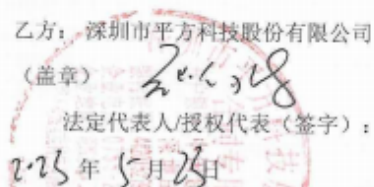 乙方：深圳市平方科技股份有限公司
（盖章）
法定代表人/授权代表（签字）：
2025 年 5 月 23 日